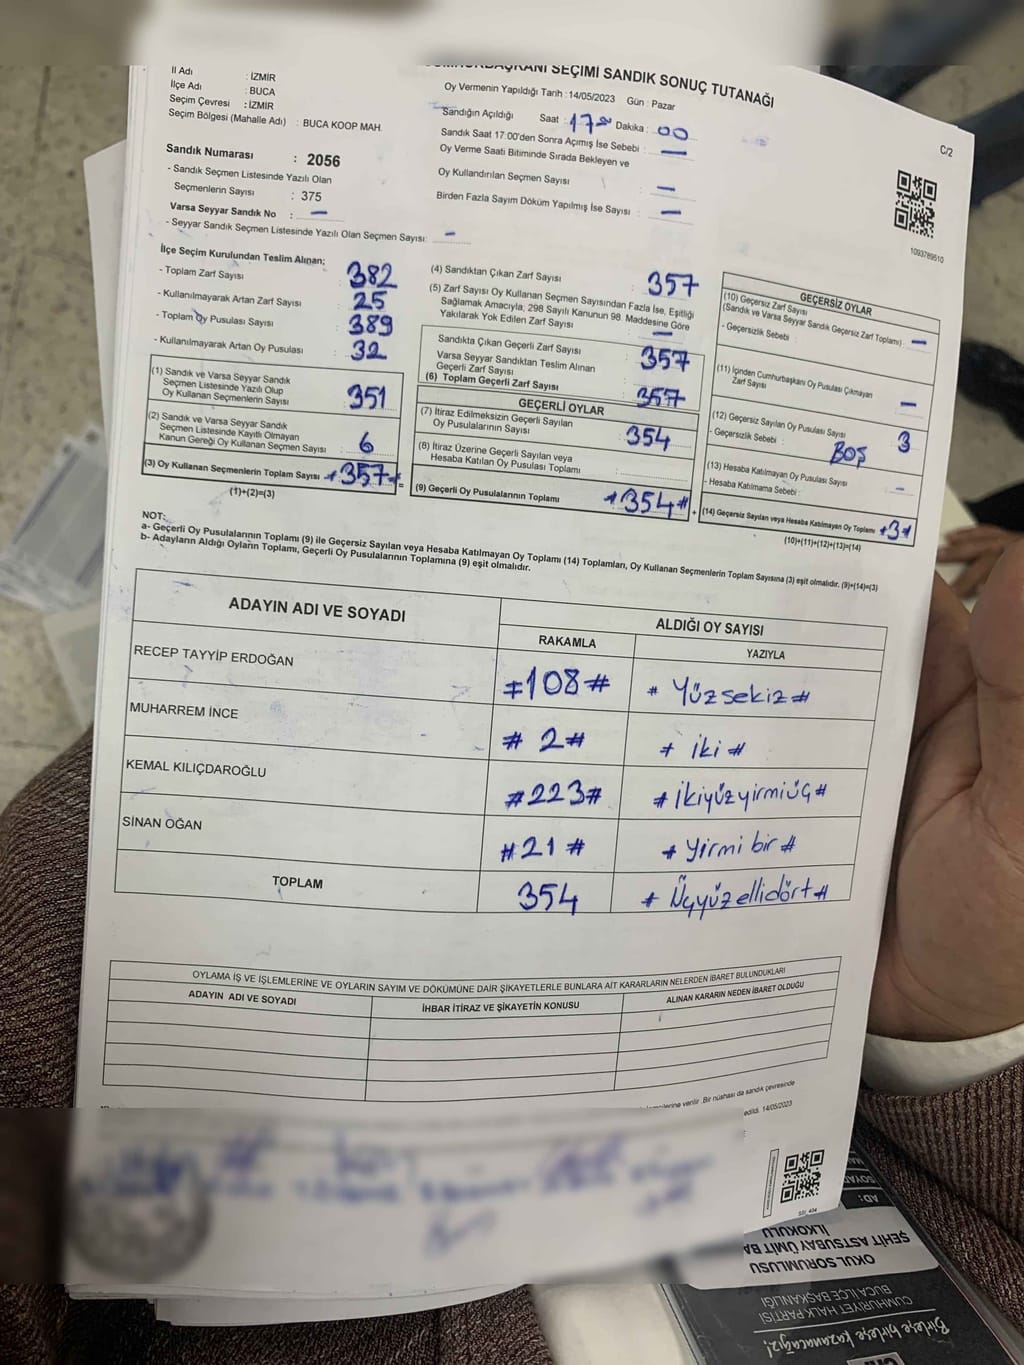 CUMHURBAŞKANI SEÇİMİ SANDIK SONUÇ TUTANAĞI
C/2
İl Adı : İZMİR
İlçe Adı : BUCA
Seçim Çevresi : İZMİR
Seçim Bölgesi (Mahalle Adı) : BUCA KOOP MAH.
Sandık Numarası : 2056
- Sandık Seçmen Listesinde Yazılı Olan
Seçmenlerin Sayısı : 375
Varsa Seyyar Sandık No : –
- Seyyar Sandık Seçmen Listesinde Yazılı Olan Seçmen Sayısı: –
Oy Vermenin Yapıldığı Tarih : 14/05/2023 Gün : Pazar
Sandığın Açıldığı Saat : 17 00 Dakika : 00
Sandık Saat 17:00'den Sonra Açımış İse Sebebi : –
Oy Verme Saati Bitiminde Sırada Bekleyen ve
Oy Kullandırılan Seçmen Sayısı : –
Birden Fazla Sayım Döküm Yapılmış İse Sayısı : –
1093789510
İlçe Seçim Kurulundan Teslim Alınan;
- Toplam Zarf Sayısı : 382
- Kullanılmayarak Artan Zarf Sayısı : 25
- Toplam Oy Pusulası Sayısı : 389
- Kullanılmayarak Artan Oy Pusulası : 32
(1) Sandık ve Varsa Seyyar Sandık
Seçmen Listesinde Yazılı Olup
Oy Kullanan Seçmenlerin Sayısı : 351
(2) Sandık ve Varsa Seyyar Sandık
Seçmen Listesinde Kayıtlı Olmayan
Kanun Gereği Oy Kullanan Seçmen Sayısı : 6
(3) Oy Kullanan Seçmenlerin Toplam Sayısı #357# =
(1)+(2)=(3)
(4) Sandıktan Çıkan Zarf Sayısı : 357
(5) Zarf Sayısı Oy Kullanan Seçmen Sayısından Fazla İse, Eşitliği
Sağlamak Amacıyla; 298 Sayılı Kanunun 98. Maddesine Göre
Yakılarak Yok Edilen Zarf Sayısı : –
Sandıkta Çıkan Geçerli Zarf Sayısı : 357
Varsa Seyyar Sandıktan Teslim Alınan
Geçerli Zarf Sayısı :
(6) Toplam Geçerli Zarf Sayısı : 357
GEÇERLİ OYLAR
(7) İtiraz Edilmeksizin Geçerli Sayılan
Oy Pusulalarının Sayısı : 354
(8) İtiraz Üzerine Geçerli Sayılan veya
Hesaba Katılan Oy Pusulası Toplamı :
(9) Geçerli Oy Pusulalarının Toplamı #354# +
GEÇERSİZ OYLAR
(10) Geçersiz Zarf Sayısı
(Sandık ve Varsa Seyyar Sandık Geçersiz Zarf Toplamı) : –
- Geçersizlik Sebebi :
(11) İçinden Cumhurbaşkanı Oy Pusulası Çıkmayan
Zarf Sayısı : –
(12) Geçersiz Sayılan Oy Pusulası Sayısı : 3
- Geçersizlik Sebebi : BOŞ
(13) Hesaba Katılmayan Oy Pusulası Sayısı : –
- Hesaba Katılmama Sebebi :
(14) Geçersiz Sayılan veya Hesaba Katılmayan Oy Toplamı #3#
(10)+(11)+(12)+(13)=(14)
NOT:
a- Geçerli Oy Pusulalarının Toplamı (9) ile Geçersiz Sayılan veya Hesaba Katılmayan Oy Toplamı (14) Toplamları, Oy Kullanan Seçmenlerin Toplam Sayısına (3) eşit olmalıdır. (9)+(14)=(3)
b- Adayların Aldığı Oyların Toplamı, Geçerli Oy Pusulalarının Toplamına (9) eşit olmalıdır.
ADAYIN ADI VE SOYADI ALDIĞI OY SAYISI
RAKAMLA YAZIYLA
RECEP TAYYİP ERDOĞAN #108# # Yüzsekiz #
MUHARREM İNCE # 2 # # iki #
KEMAL KILIÇDAROĞLU #223# # İkiyüzyirmiüç #
SİNAN OĞAN #21# # Yirmi bir #
TOPLAM 354 # Üçyüzellidört #
OYLAMA İŞ VE İŞLEMLERİNE VE OYLARIN SAYIM VE DÖKÜMÜNE DAİR ŞİKAYETLERLE BUNLARA AİT KARARLARIN NELERDEN İBARET BULUNDUKLARI
ADAYIN ADI VE SOYADI İHBAR İTİRAZ VE ŞİKAYETİN KONUSU ALINAN KARARIN NEDEN İBARET OLDUĞU
verilir. Bir nüshası da sandık çevresinde
edildi. 14/05/2023
AD:
OKUL SORUMLUSU
ŞEHİT ASTSUBAY ÜMİT BA
İLKOKULU
CUMHURİYET HALK PARTİSİ
BUCA İLÇE BAŞKANLIĞI
Birleşe birleşe kazanacağız!